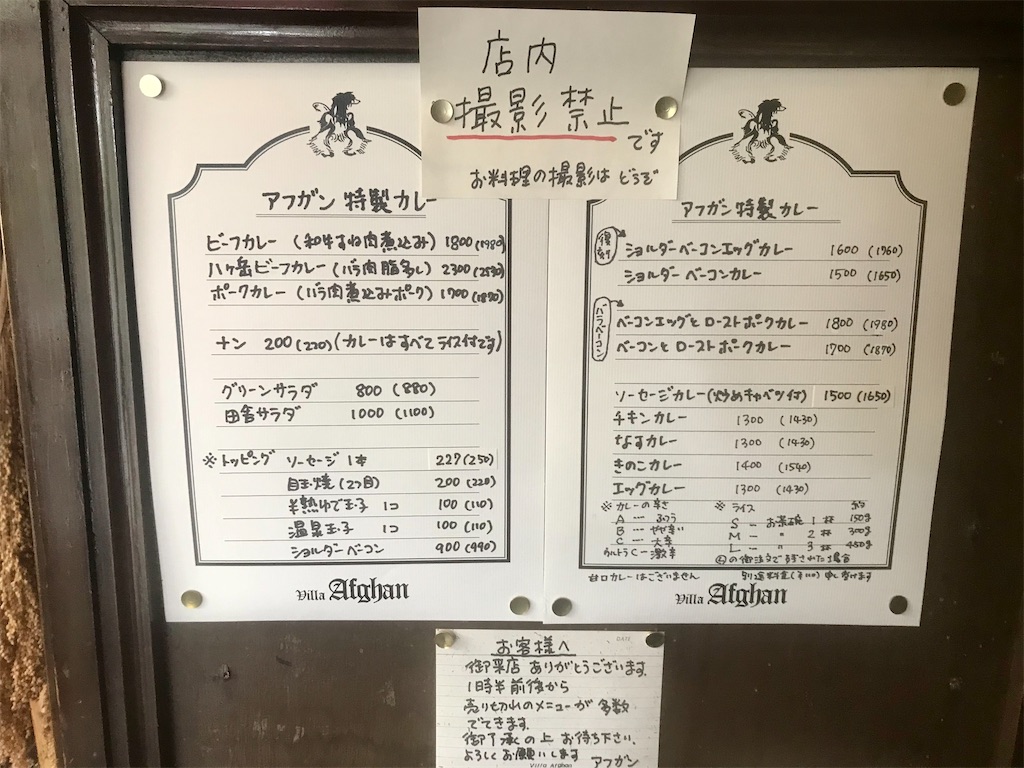 店内
撮影禁止
です
お料理の撮影は どうぞ
アフガン 特製カレー
ビーフカレー (和牛すね肉煮込み) 1800(1980)
八ヶ岳ビーフカレー (バラ肉脂多し) 2300(2530)
ポークカレー (バラ肉煮込みポーク) 1700(1870)
ナン 200(220)(カレーはすべてライス付です)
グリーンサラダ 800 (880)
田舎サラダ 1000 (1100)
※トッピング ソーセージ 1本 227(250)
目玉焼(2つ目) 200(220)
半熟ゆで玉子 1コ 100(110)
温泉玉子 1コ 100(110)
ショルダーベーコン 900(990)
Villa Afghan
アフガン特製カレー
復刻
ショルダーベーコンエッグカレー 1600 (1760)
ショルダーベーコンカレー 1500 (1650)
バラベーコン
ベーコンエッグと ローストポークカレー 1800 (1980)
ベーコンと ローストポークカレー 1700 (1870)
ソーセージカレー(炒めキャベツ付) 1500(1650)
チキンカレー 1300 (1430)
なすカレー 1300 (1430)
きのこカレー 1400 (1540)
エッグカレー 1300 (1430)
※ カレーの辛さ
A ふつう
B やや辛い
C 大辛
ウルトラC ー 激辛
甘口カレーはございません
※ ライス 約
S - お茶碗 1杯 150g
M - 〃 2杯 300g
L - 〃 3杯 450g
の御注文で 残された場合
別途料金 申し受けます
Villa Afghan
お客様へ
御来店 ありがとうございます.
1時半前後から
売り切れのメニューが 多数
でてきます.
御了承の上 お待ち下さい.
よろしくお願いします
アフガン
Villa Afghan